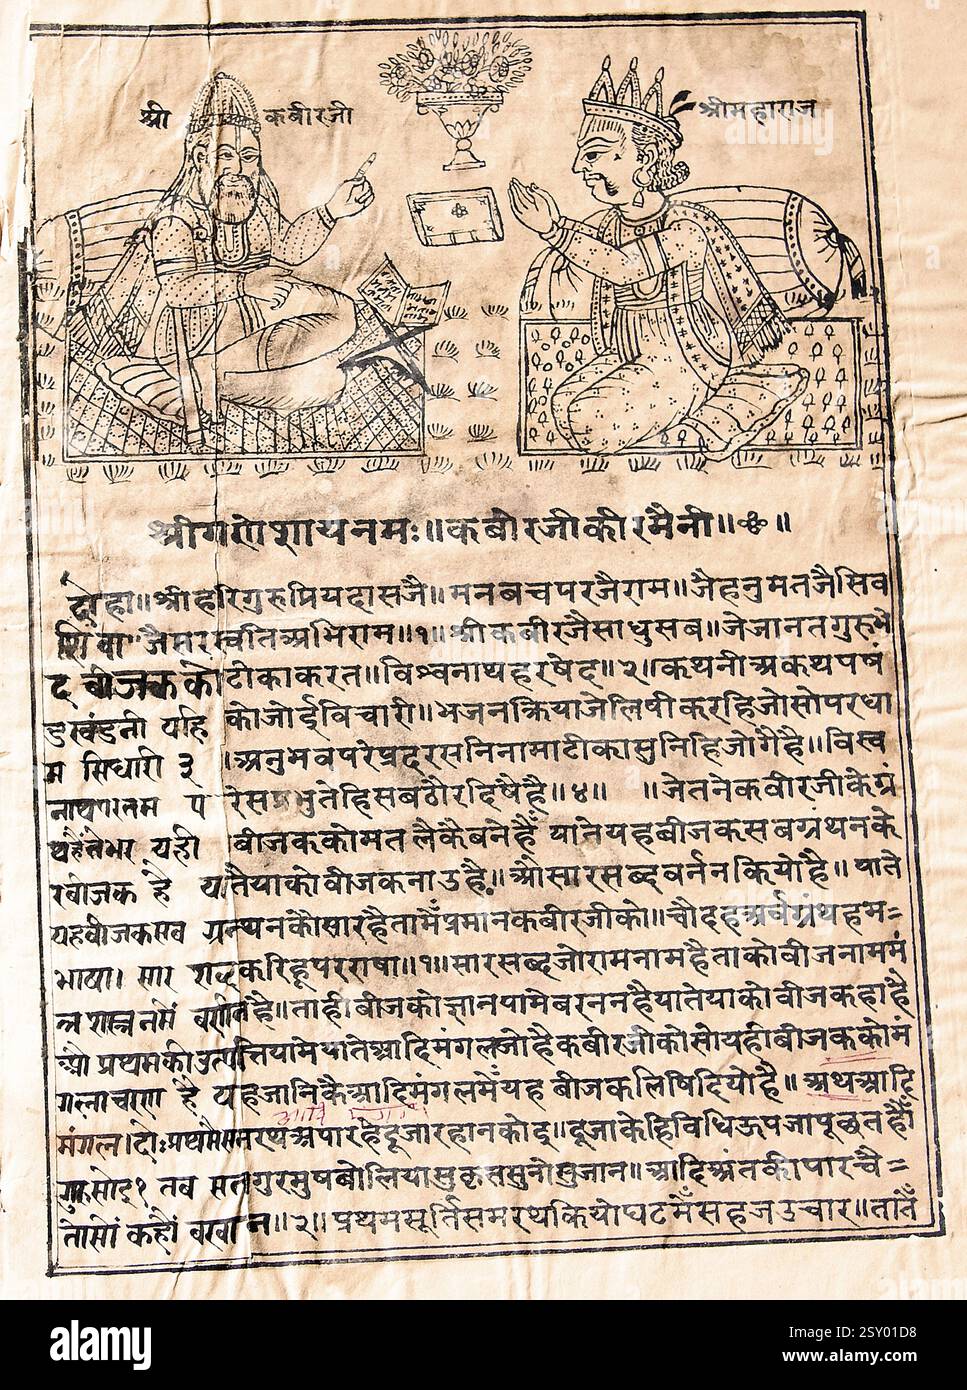 श्री कबीरजी
श्रीमहाराज
श्रीगणेशायनमः॥कबीरजीकीरमैनी॥॥
दोहा॥श्रीहरिगुरुप्रियदासजै॥मनबचपरजैराम॥जैहनुमतजैसिव
सिवा जैसरस्वतिअभिराम॥१॥श्रीकबीरजैसाधुसब॥जेजानतगुरुभे
द बीजकको टीकाकरत॥विश्वनाथहरषेद॥२॥कथनीअकथपषं
डखंडनी यहि कोजोईविचारी॥भजनक्रियाजेलिषीकरहिजोसोपरधा
म सिधारी ३ ।अनुभवपरंप्रदरसनिनामाटीकासुनिहिजोगैहै॥विस्व
रेसप्रभुतेहिसबठौरदिषैहै॥४॥ ॥जेतनेकबीरजीकेग्रं
यही बीजककोमतलैकैबनेहैं यातेयहबीजकसबग्रंथनके
रबीजक है यातेयाकोबीजकनाउहै॥औसारसब्दवर्ननकियोहै॥याते
यहबीजकसब ग्रन्थनकौसारहैतामेंप्रमानकबीरजीको॥चौदहअर्वग्रंथहम=
भाषा। सार शब्दकरिहूपरराषा॥१॥सारसब्दजोरामनामहैताकोबीजनाममं
है॥ताहीबीजकोज्ञानपामेबरननहैयातेयाकोबीजकहाहै
औ प्रथमकीउत्पत्तियामेयातेआदिमंगलजोहैकबीरजीकोसोयहीबीजककोमं
गलाचारण है यहजानिकैआदिमंगलमेंयह बीजकलिषिदियोहै॥अथआदि
मंगल।दो॰प्रथमैसमरथअपारहेदूजारहानकोइ॥दूजाकेहिविधिऊपजापूछतहौं
गुरुसोइ१ तब सतगुरमुषबोलियासुकृतसुनोसुजान॥आदिअंतकीपारचै=
तोसों कहौं बखान॥२॥प्रथमसूर्तिसमरथकियोघटमेंसहजउचार॥तातें
alamy
Image ID: 2SY01D8
www.alamy.com